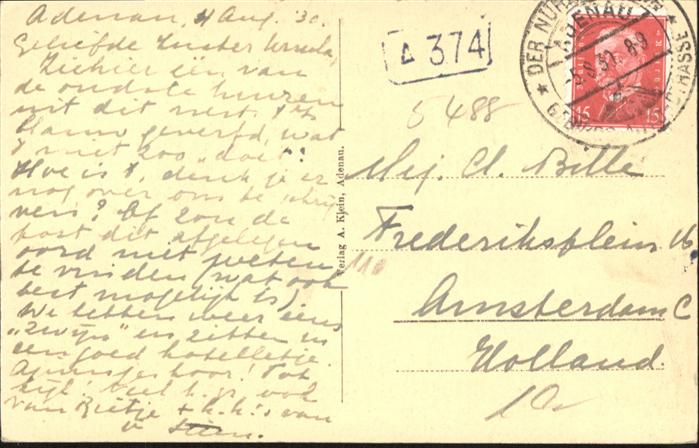 Adenau, 4 Aug. 30.
Geliefde Zuster Ursula,
Ziehier één van
de oudste huizen
uit dit nest. 't Is
blauw geverfd, wat
't niet zoo "doet".
Hoe is 't, denk je er
nog over ons te schrij
ven? Of zou de
post dit afgelegen
oord niet weten
te vinden (wat ook
best mogelijk is)
We hebben weer eens
"zwijn" en zitten in
een goed hotelletje.
hoor! Tot
kijk! Veel h. gr. ook
van Zietje + h. k's van
v
△ 374
5488
DER NÜR
ADENAU
8-9
STRASSE
15 15
Verlag A. Klein, Adenau.
Mej. Cl. Bitte
Frederiksplein
110
Amsterdam C
Holland